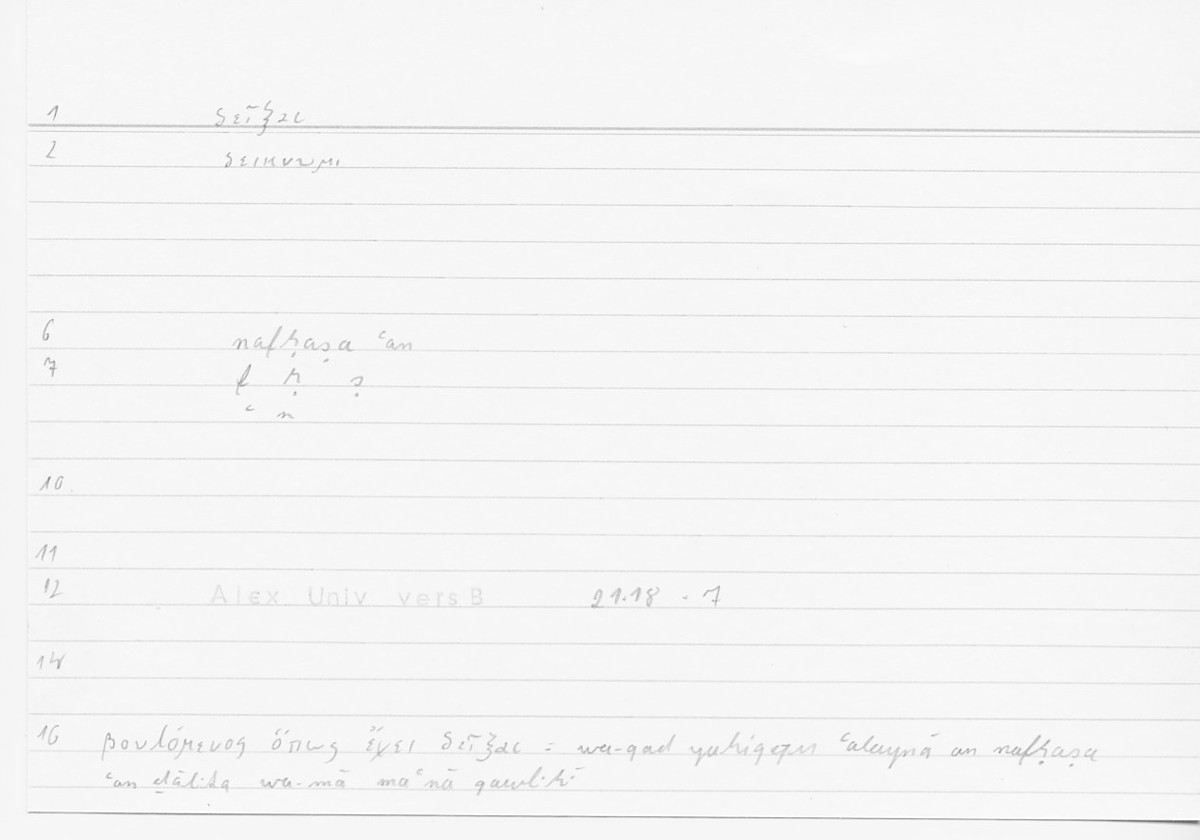 1 δεῖξαι
2 δεικνυμι
6 nafḥaṣa ʿan
7 f ḥ ṣ
ʿ n
10
11
12 Alex Univ vers B 21.18 - 7
14
16 βουλόμενος ὅπως ἔχει δεῖξαι = wa-qad ʿalaynā an nafḥaṣa
ʿan ḏālika wa-mā maʿnā qawlihī